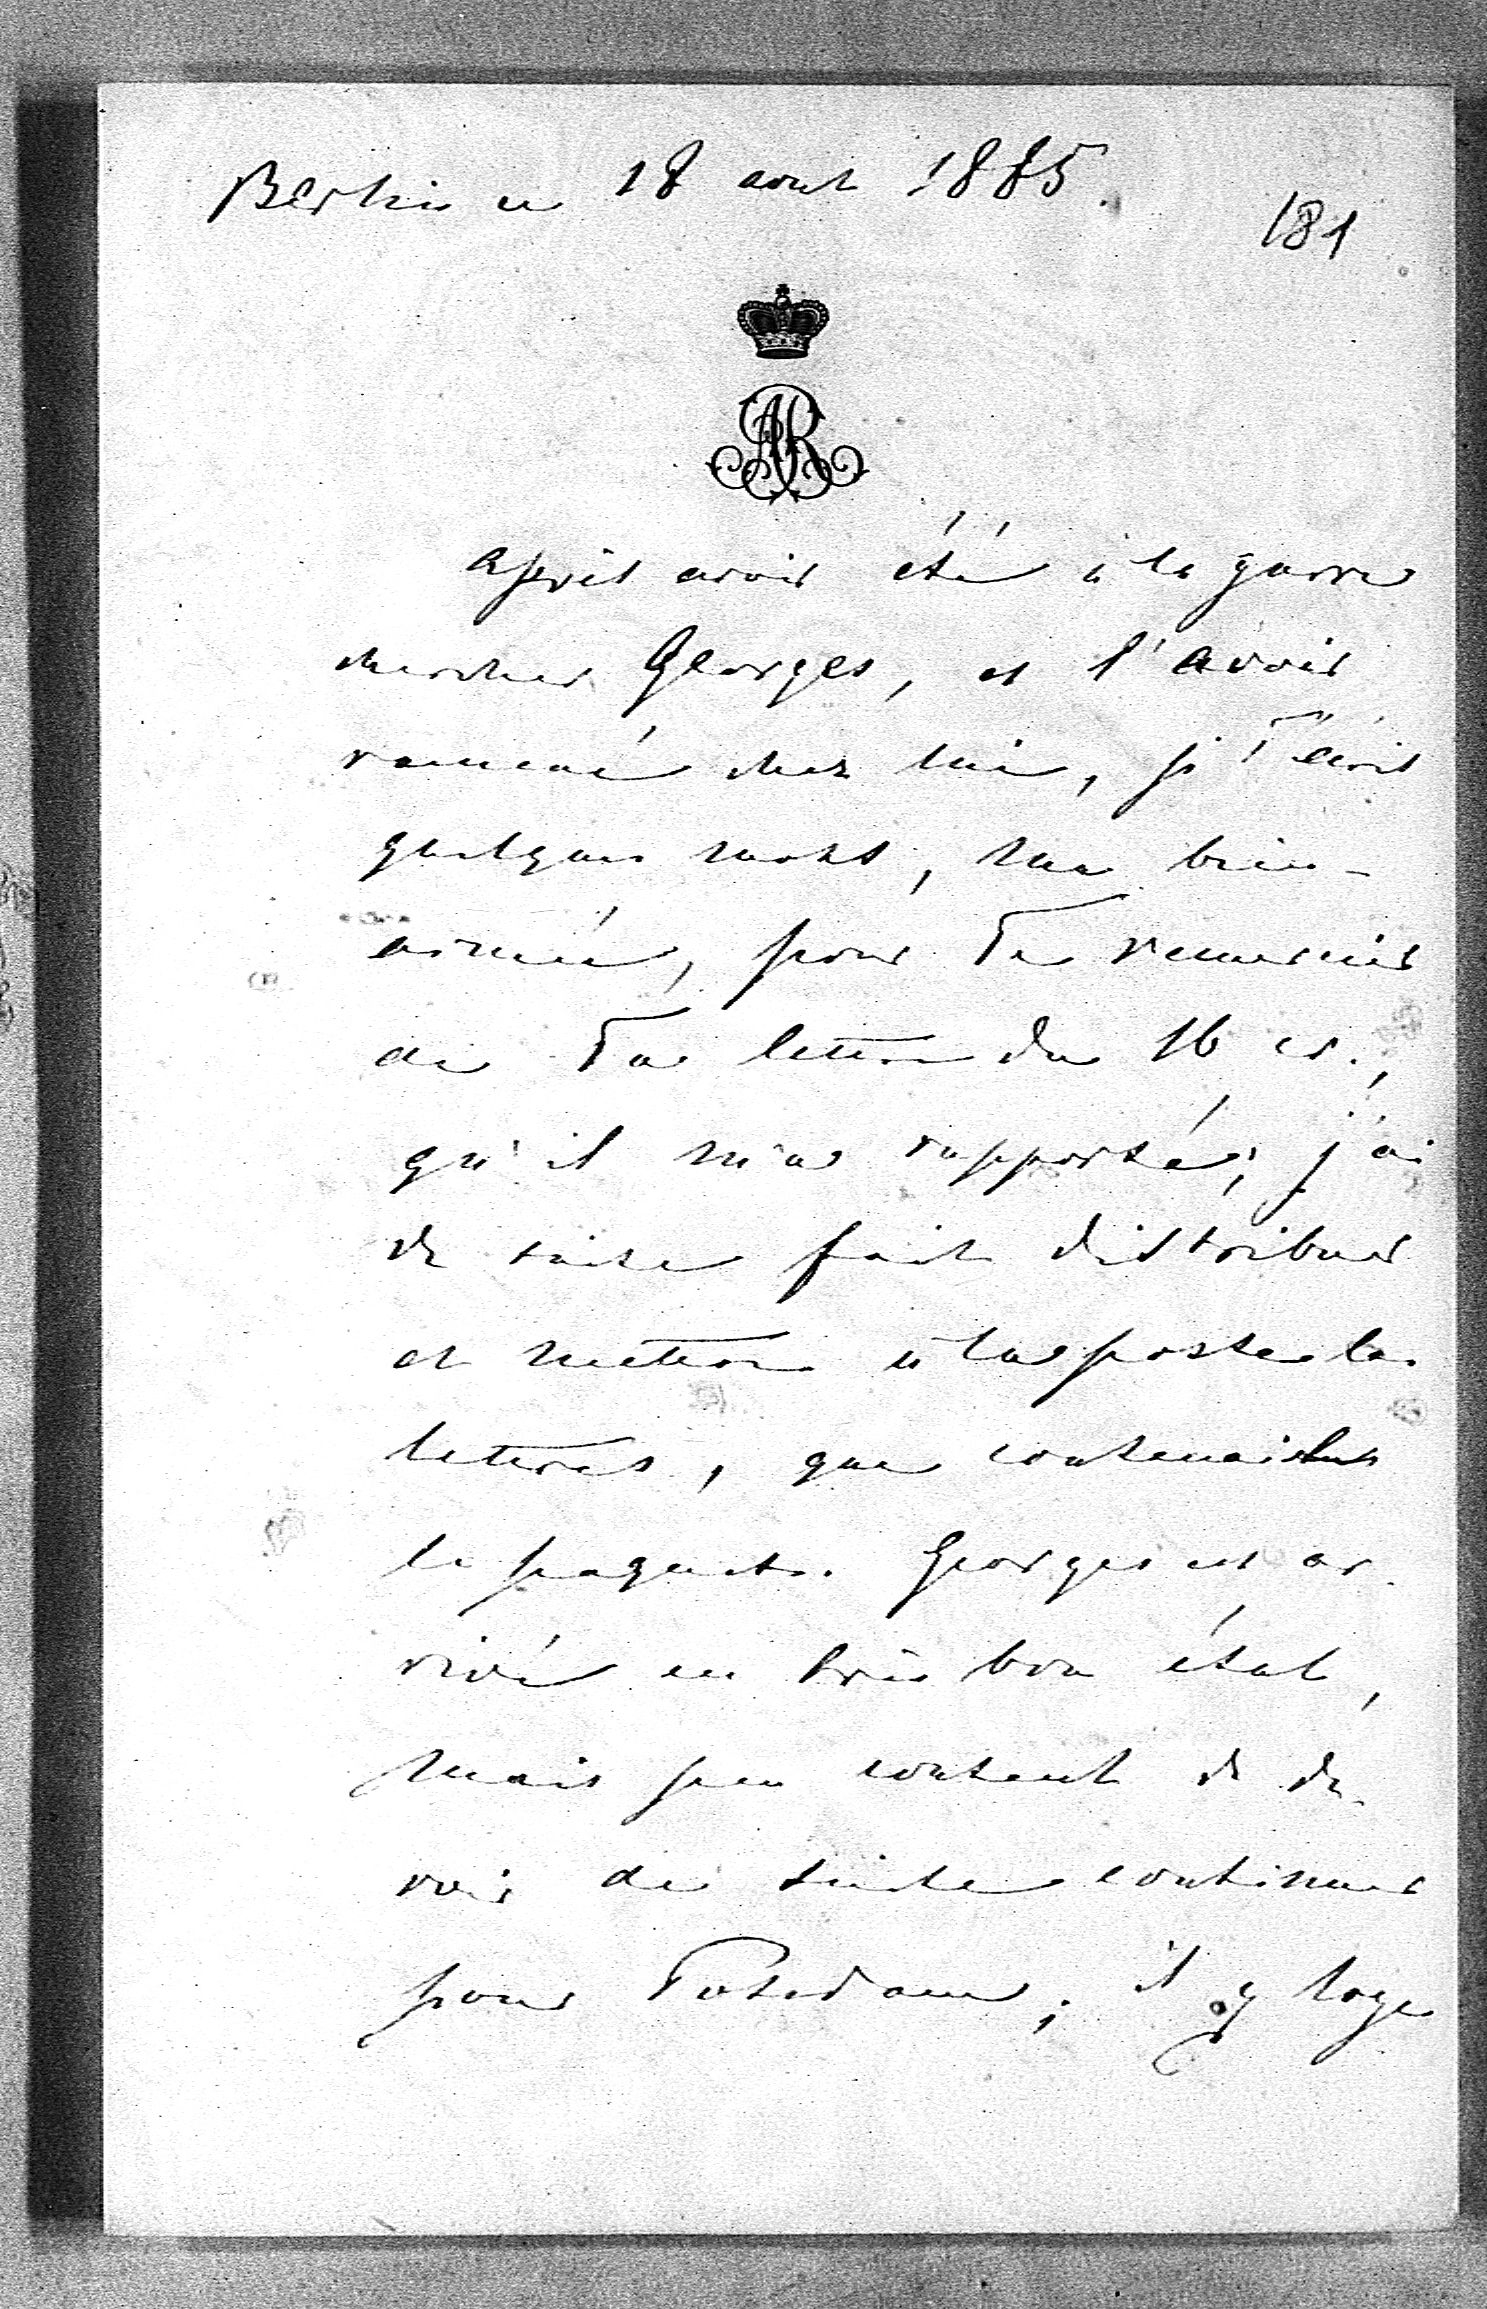 Berlin ce 18 aout 1885.
181
AR
Après avoir été à la garre
chercher Georges, et l'avoir
ramené chez lui, je T'écris
quelques mots, ma bien-
aimée, pour Te remercier
de Ta lettre du 16 cr.,
qu'il m'a rapporté; j'ai
de suite fait distribuer
et mettre à la poste les
lettres, que contenait
le paquet. Georges est ar-
rivé en très bon état,
mais peu content de de-
voir de suite continuer
pour Potsdam; il y loge